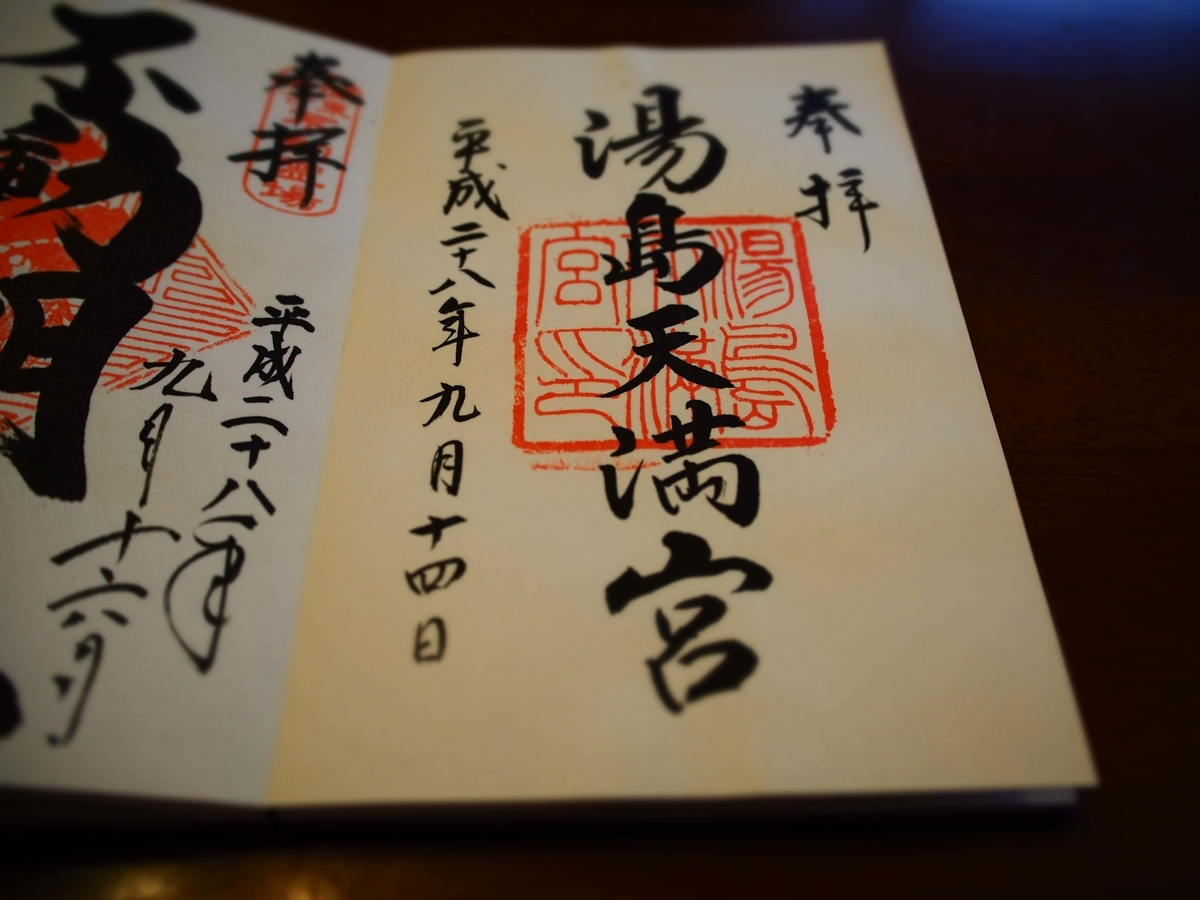 奉拝
湯島天満宮
湯島天満宮印
平成二十八年九月十四日
奉拝
平成二十八年
九月十六日